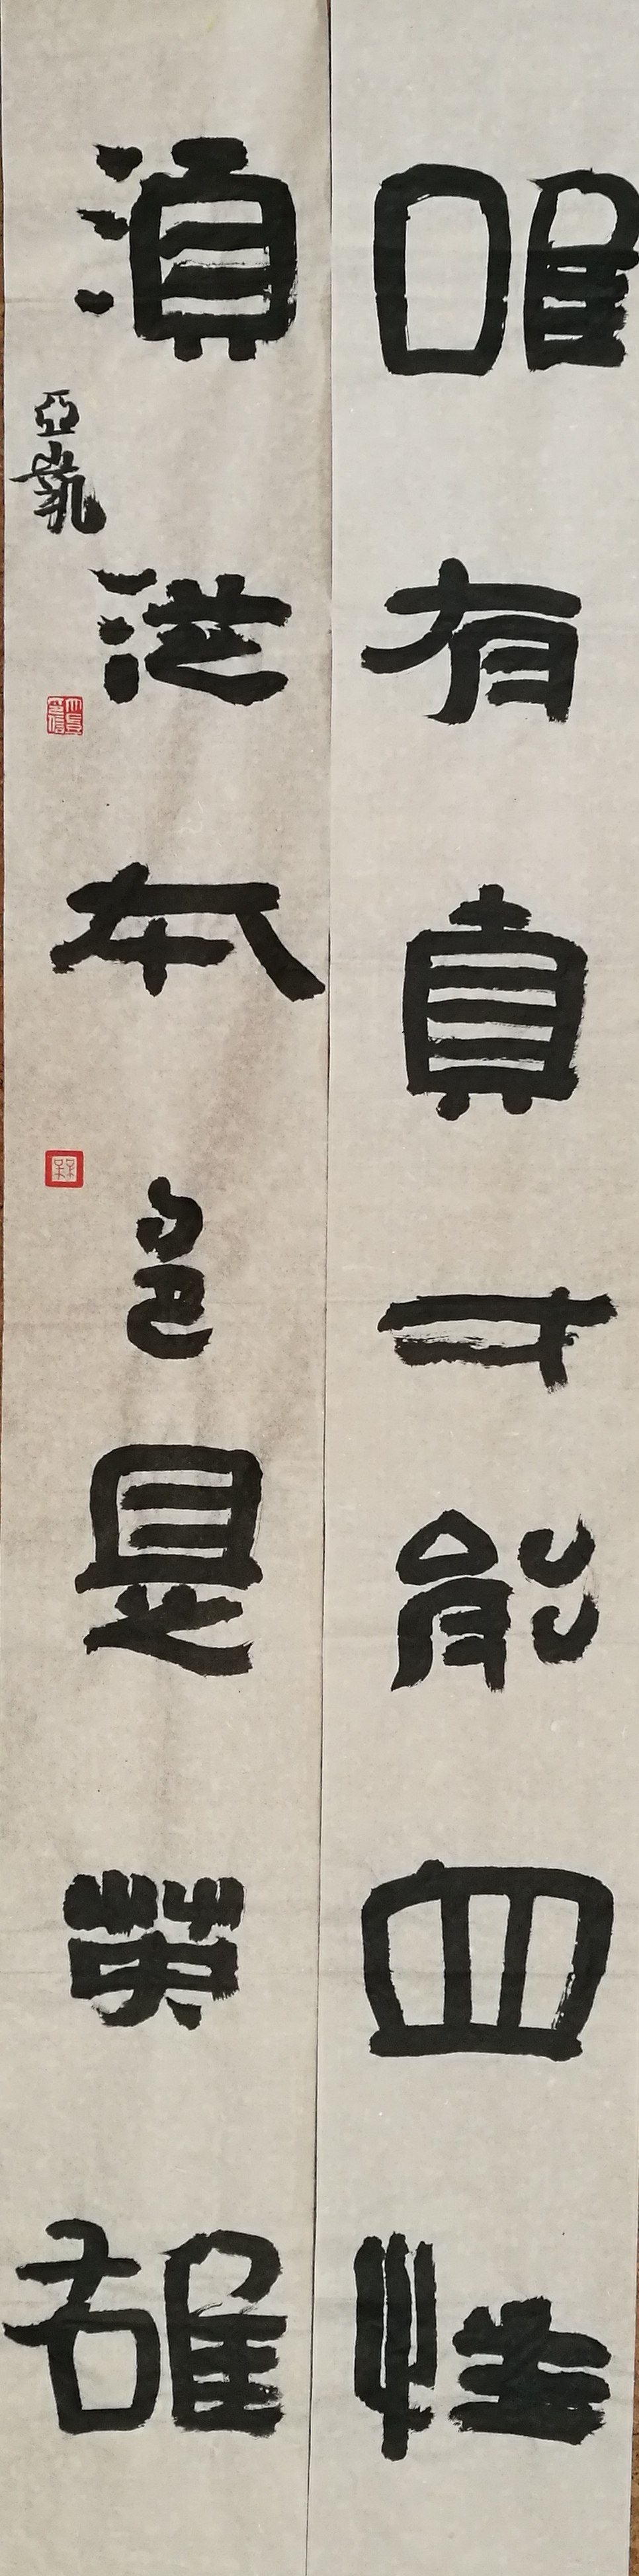 唯有真才能血性
湏從本色是英雄
亞